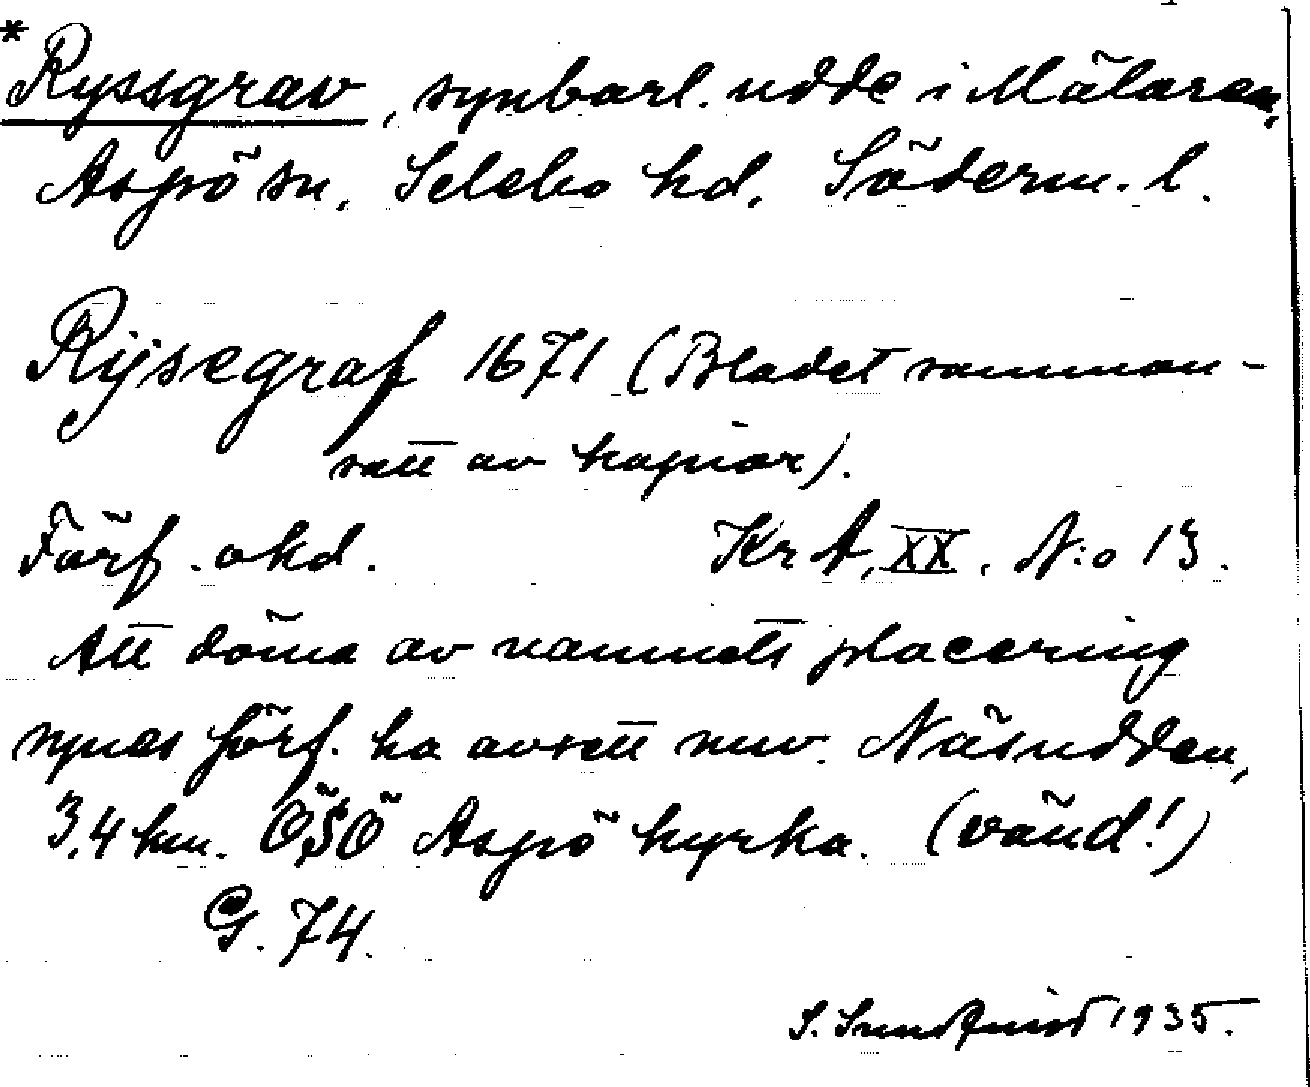 *Ryssgrav, synbarl. udde i Mälaren,
Aspö sn, Selebo hd, Söderm. l.
Rÿsegraf 1671 (Bladet samman-
satt av kopior).
Förf. okd. KrA, XX. N:o 13.
Att döma av namnets placering
synes förf. ha avsett nuv. Näsudden,
3,4 km. ÖSÖ Aspö kyrka. (vänd!)
G. 74.
S. Sundquist 1935.